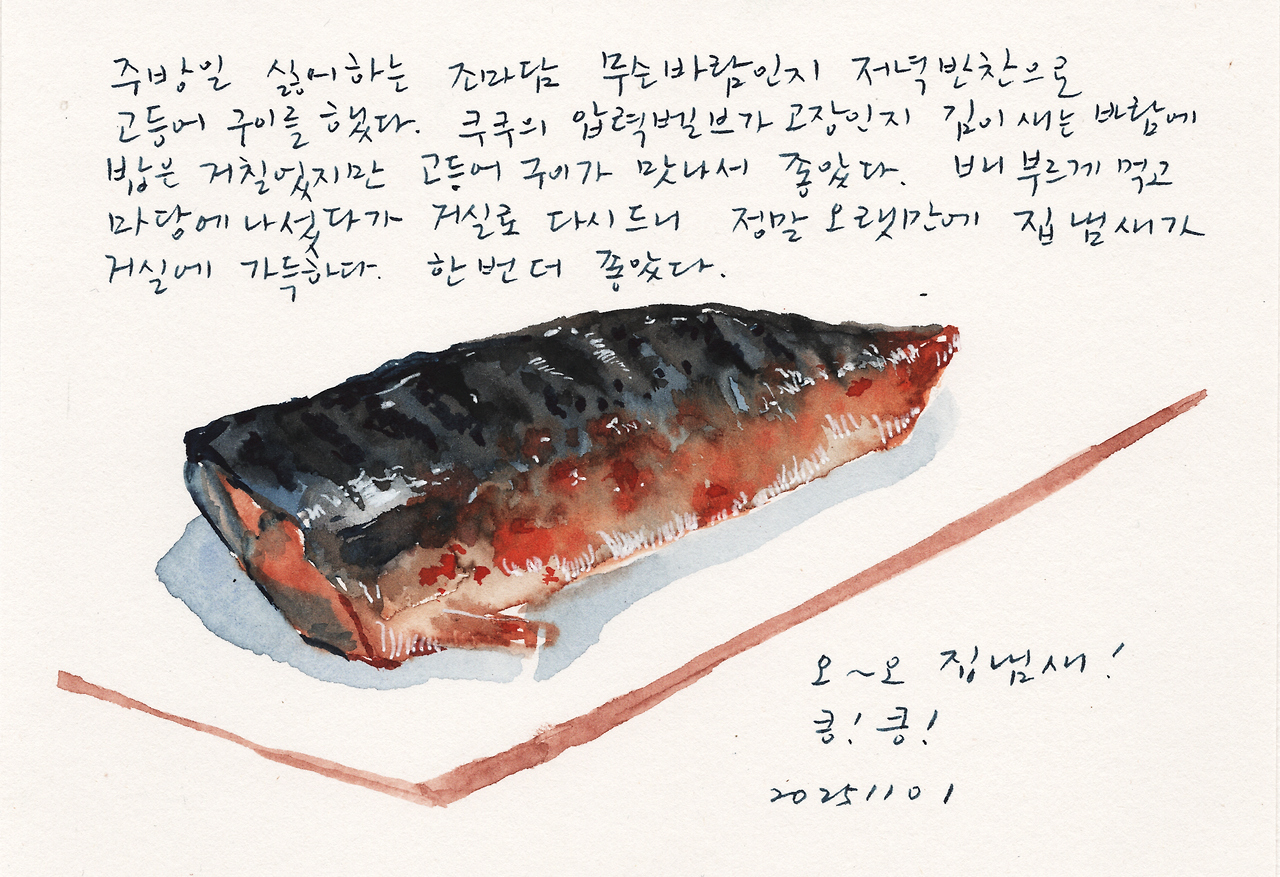 주방일 싫어하는 조마담 무순바람인지 저녁반찬으로
고등어 구이를 했다. 쿠쿠의 압력벨브가 고장인지 김이 새는 바람에
밥은 거칠었지만 고등어 구이가 맛나서 좋았다. 배 부르게 먹고
마당에 나섰다가 거실로 다시 드니 정말 오랫만에 집 냄새가
거실에 가득하다. 한 번 더 좋았다.
오~오 집냄새!
킁! 킁!
20251101